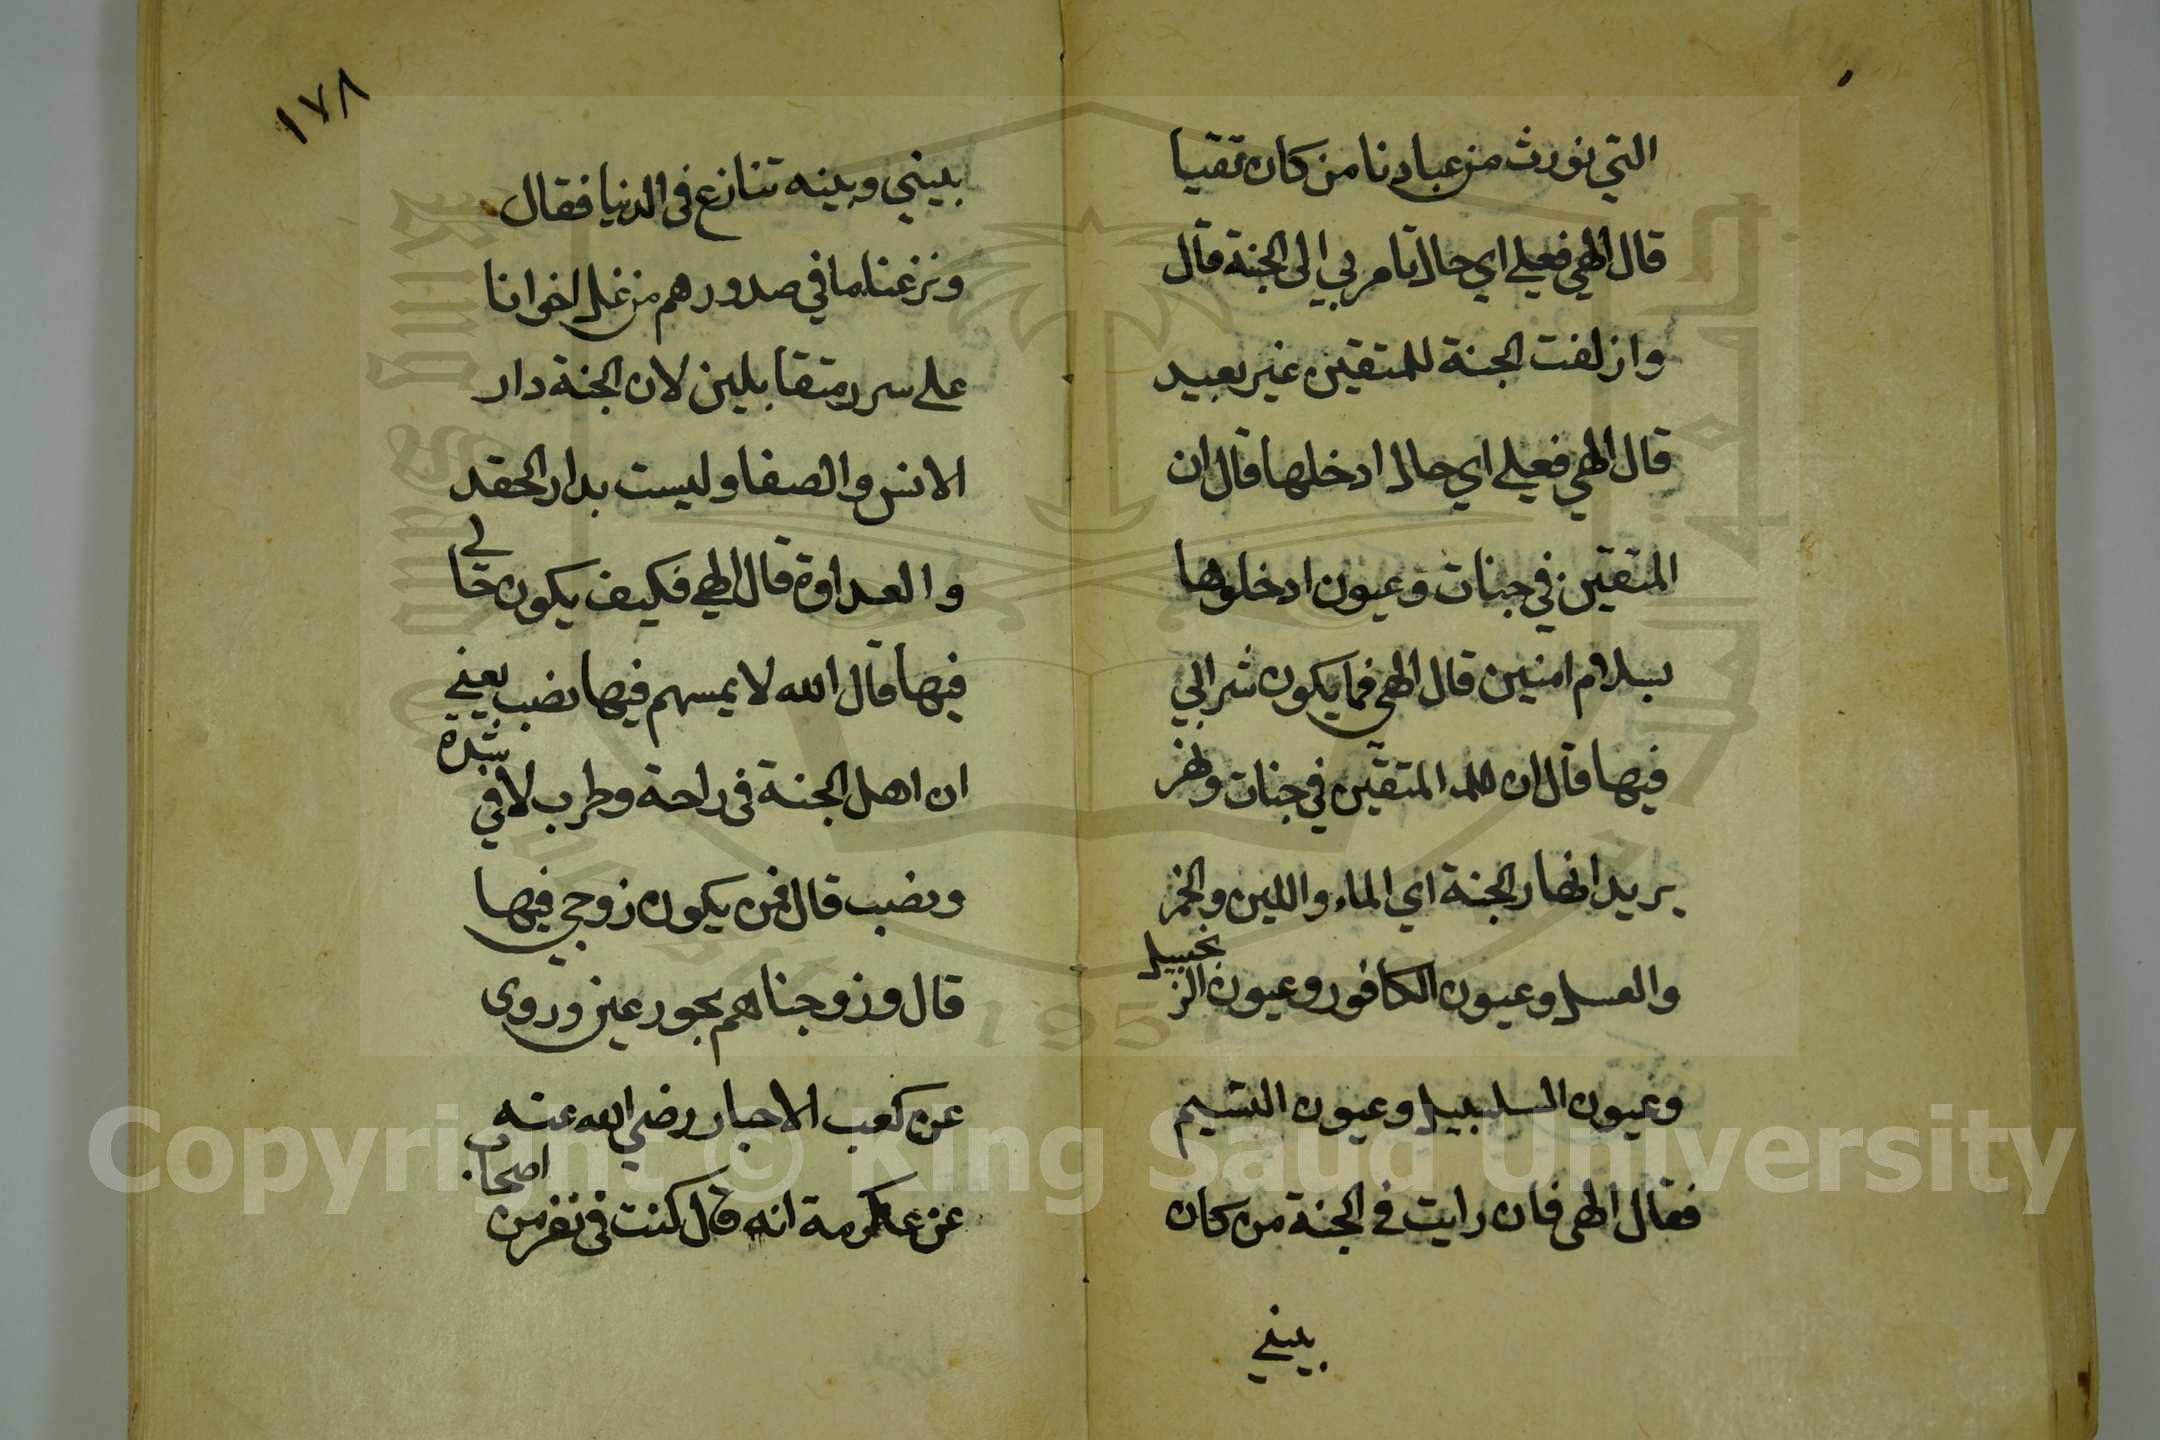 التي نورث من عبادنا من كان تقيا
قال الهي فعلي اي حال تامر بي الى الجنة قال
وازلفت الجنة للمتقين غير بعيد
قال الهي فعلي اي حال ادخلها قال ان
المتقين في جنات وعيون ادخلوها
بسلام امنين قال الهي فما يكون شرابي
فيها قال ان المتقين في جنات ونهر
يريد انهار الجنة اي الماء واللبن والخمر
والعسل وعيون الكافور وعيون الزنجبيل
وعيون السلسبيل وعيون التسنيم
فقال الهي فان رايت في الجنة من كان
بيني
١٧٨
بيني وبينه تنازع في الدنيا فقال
ونزعنا ما في صدورهم من غل اخوانا
على سرر متقابلين لان الجنة دار
الانس والصفا وليست بدار الحقد
والعداوة قال الهي فكيف يكون حالي
فيها قال الله لا يمسهم فيها نصب يعني
ان اهل الجنة في راحة وطرب لا في شدة
ونصب قال فمن يكون زوجي فيها
قال وزوجناهم بحور عين وروى
عن كعب الاحبار رضي الله عنه
عن عكرمة انه قال كنت في نفر من اصحاب
King Saud University
1957
Copyright © King Saud University